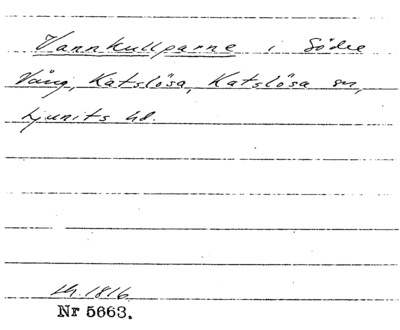 Vannkullparne i Södre
Vång, Katslösa, Katslösa sn,
Ljunits hd.
Lh. 1816
Nr 5663.